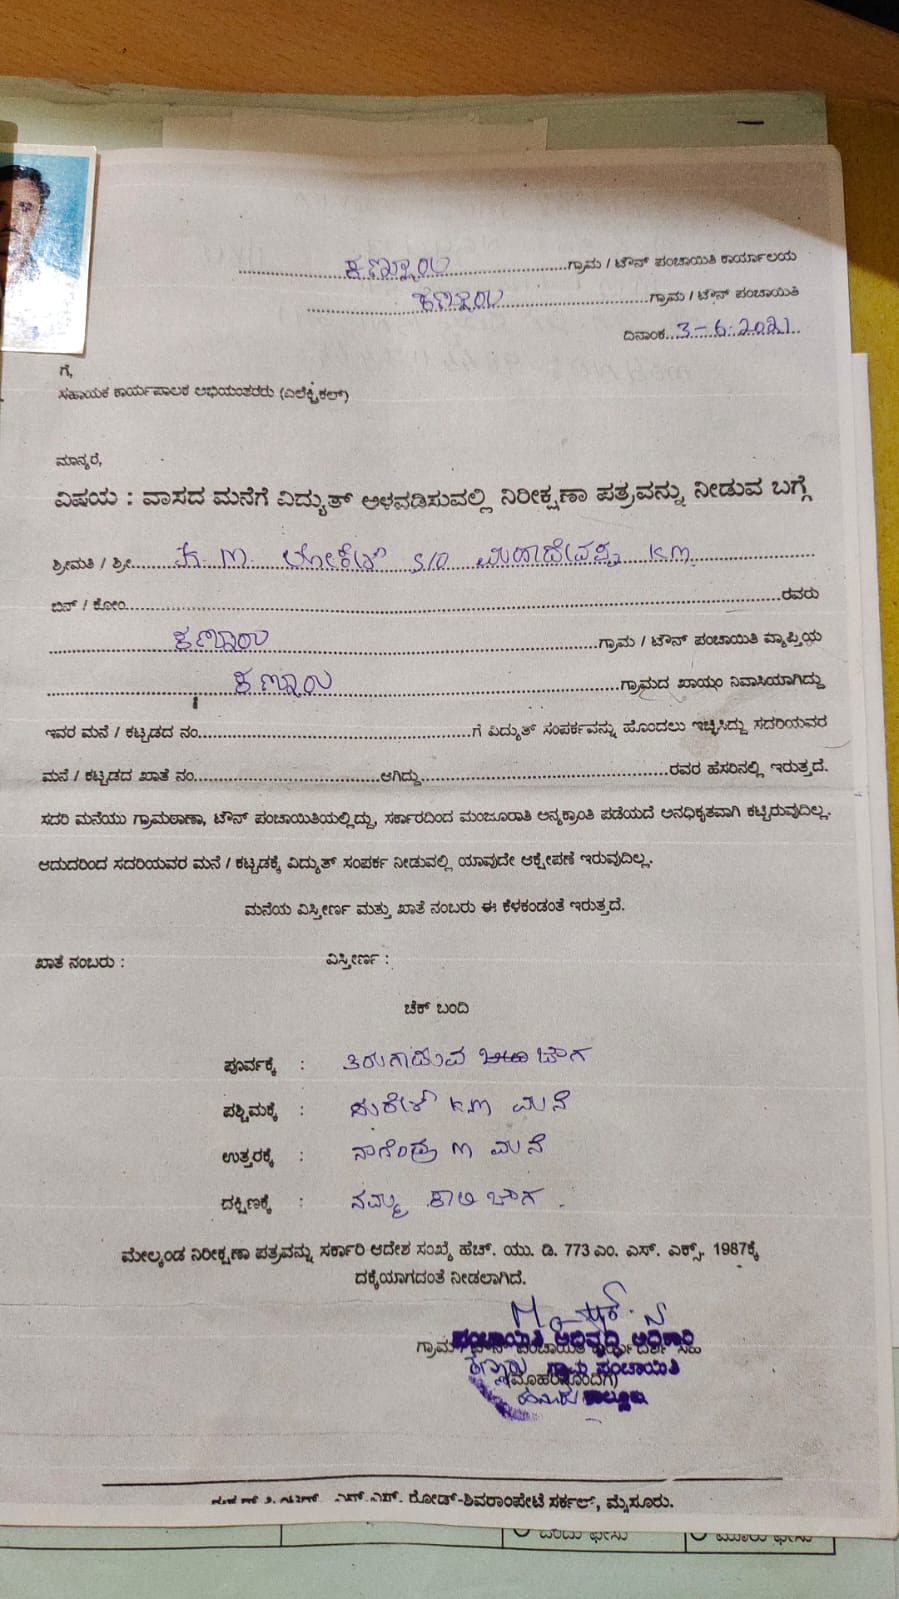 ಕಣ್ಣೂರು ಗ್ರಾಮ / ಟೌನ್ ಪಂಚಾಯಿತಿ ಕಾರ್ಯಾಲಯ
ಕಣ್ಣೂರು ಗ್ರಾಮ / ಟೌನ್ ಪಂಚಾಯಿತಿ
ದಿನಾಂಕ 3-6-2021
ಗೆ,
ಸಹಾಯಕ ಕಾರ್ಯಪಾಲಕ ಅಭಿಯಂತರರು (ಎಲೆಕ್ಟ್ರಿಕಲ್)
ಮಾನ್ಯರೆ,
ವಿಷಯ : ವಾಸದ ಮನೆಗೆ ವಿದ್ಯುತ್ ಅಳವಡಿಸುವಲ್ಲಿ ನಿರೀಕ್ಷಣಾ ಪತ್ರವನ್ನು ನೀಡುವ ಬಗ್ಗೆ
ಶ್ರೀಮತಿ / ಶ್ರೀ. ಕೆ. M. ಲೋಕೇಶ್ S/O ಮಹಾದೇವಪ್ಪ K.M
ಬಿನ್ / ಕೋಂ ರವರು
ಕಣ್ಣೂರು ಗ್ರಾಮ / ಟೌನ್ ಪಂಚಾಯಿತಿ ವ್ಯಾಪ್ತಿಯ
ಕಣ್ಣೂರು ಗ್ರಾಮದ ಖಾಯಂ ನಿವಾಸಿಯಾಗಿದ್ದು
ಇವರ ಮನೆ / ಕಟ್ಟಡದ ನಂ. ಗೆ ವಿದ್ಯುತ್ ಸಂಪರ್ಕವನ್ನು ಹೊಂದಲು ಇಚ್ಛಿಸಿದ್ದು ಸದರಿಯವರ
ಮನೆ / ಕಟ್ಟಡದ ಖಾತೆ ನಂ. ಆಗಿದ್ದು ರವರ ಹೆಸರಿನಲ್ಲಿ ಇರುತ್ತದೆ.
ಸದರಿ ಮನೆಯು ಗ್ರಾಮಠಾಣಾ, ಟೌನ್ ಪಂಚಾಯಿತಿಯಲ್ಲಿದ್ದು, ಸರ್ಕಾರದಿಂದ ಮಂಜೂರಾತಿ ಅನ್ಯಕ್ರಾಂತಿ ಪಡೆಯದೆ ಅನಧಿಕೃತವಾಗಿ ಕಟ್ಟಿರುವುದಿಲ್ಲ.
ಆದುದರಿಂದ ಸದರಿಯವರ ಮನೆ / ಕಟ್ಟಡಕ್ಕೆ ವಿದ್ಯುತ್ ಸಂಪರ್ಕ ನೀಡುವಲ್ಲಿ ಯಾವುದೇ ಆಕ್ಷೇಪಣೆ ಇರುವುದಿಲ್ಲ.
ಮನೆಯ ವಿಸ್ತೀರ್ಣ ಮತ್ತು ಖಾತೆ ನಂಬರು ಈ ಕೆಳಕಂಡಂತೆ ಇರುತ್ತದೆ.
ಖಾತೆ ನಂಬರು : ವಿಸ್ತೀರ್ಣ :
ಚೆಕ್ ಬಂದಿ
ಪೂರ್ವಕ್ಕೆ : ತಿರುಗಾಡುವ ಜಾಗ
ಪಶ್ಚಿಮಕ್ಕೆ : ಸುರೇಶ್ K.M ಮನೆ
ಉತ್ತರಕ್ಕೆ : ನಾಗೇಂದ್ರ M ಮನೆ
ದಕ್ಷಿಣಕ್ಕೆ : ನಮ್ಮ ಖಾಲಿ ಜಾಗ
ಮೇಲ್ಕಂಡ ನಿರೀಕ್ಷಣಾ ಪತ್ರವನ್ನು ಸರ್ಕಾರಿ ಆದೇಶ ಸಂಖ್ಯೆ ಹೆಚ್. ಯು. ಡಿ. 773 ಎಂ. ಎಸ್. ಎಕ್ಸ್. 1987ಕ್ಕೆ
ದಕ್ಕೆಯಾಗದಂತೆ ನೀಡಲಾಗಿದೆ.
ಪಂಚಾಯಿತಿ ಅಭಿವೃದ್ಧಿ ಅಧಿಕಾರಿ
ಗ್ರಾಮ / ಟೌನ್ ಪಂಚಾಯಿತಿ ಕಾರ್ಯದರ್ಶಿ ಸಹಿ
ಕಣ್ಣೂರು ಗ್ರಾಮ ಪಂಚಾಯಿತಿ
(ಮೊಹರಿನೊಂದಿಗೆ)
ಹನೂರು ತಾಲ್ಲೂಕು
ಎಸ್.ಎಸ್. ರೋಡ್-ಶಿವರಾಂಪೇಟೆ ಸರ್ಕಲ್, ಮೈಸೂರು.